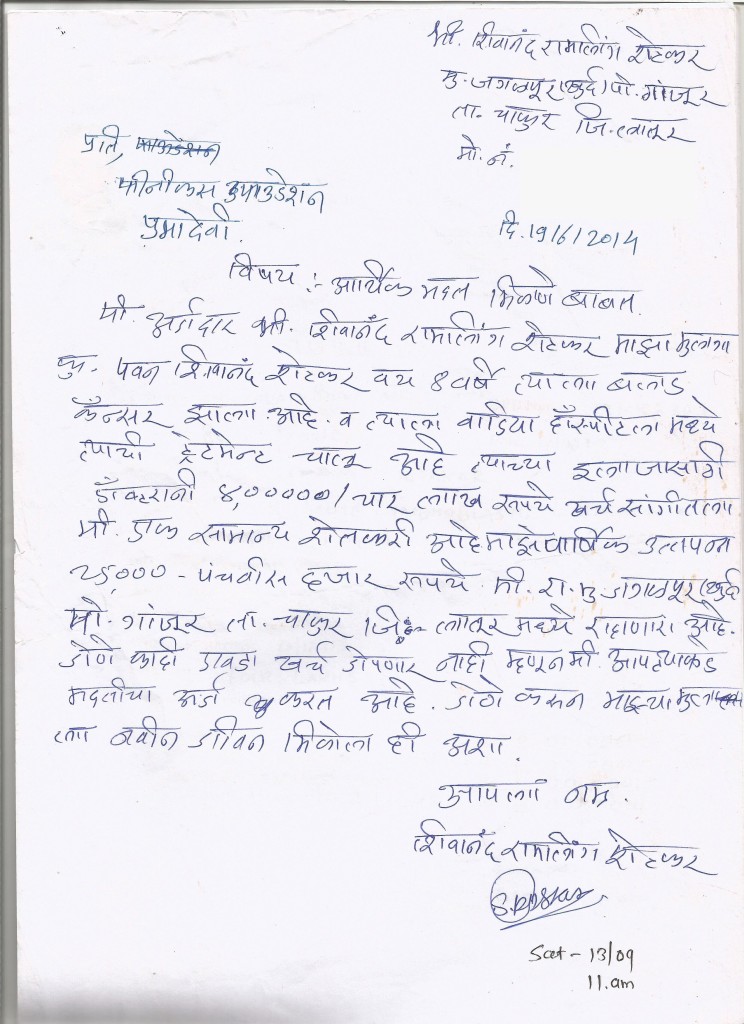 श्री. शिवानंद रामलिंग शेटकर
मु. जगळपूर (खुर्द) पो. गांजूर
ता. चाकुर जि. लातूर
मो. नं.
प्रति, फाऊंडेशन
फीनीक्स फाउडेशन
प्रभादेवी.
दि. 19/6/2014
विषय :- आर्थिक मदत मिळणे बाबत.
मी. अर्जदार श्री. शिवानंद रामलिंग शेटकर माझा मुलगा
कु. पवन शिवानंद शेटकर वय 8 वर्षे त्याला बलड
कॅन्सर झाला आहे. व त्याला वाडिया हॉस्पीटल मध्ये
त्याची ट्रेटमेन्ट चालू आहे त्याच्या इलाजासाठी
डॉक्टरानी ४,०००००/ चार लाख रूपये खर्च सांगीतला.
मी. एक सामान्य शेतकरी आहे माझे वार्षिक उत्तपन्न
२५,००० - पंचवीस हजार रूपये. मी. रा. मु जगळपूर (खुर्द
पो. गांजूर ता. चाकुर जि. लातूर मध्ये राहाणारा आहे.
जेणे काही एवडा खर्च झेपणार नाही म्हणून मी. आपल्याकडे
मदतीचा अर्ज करत आहे. जेणे करून माझ्या मुला
ला नवीन जीवन मिळेल ही अशा.
आपला नम्र.
शिवानंद रामलिंग शेटकर
Sat - 13/09
11.am